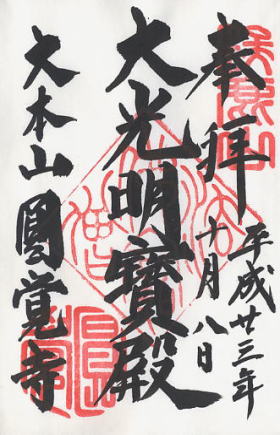 奉拝
平成廿三年
十月八日
大光明寶殿
大本山圓覚寺